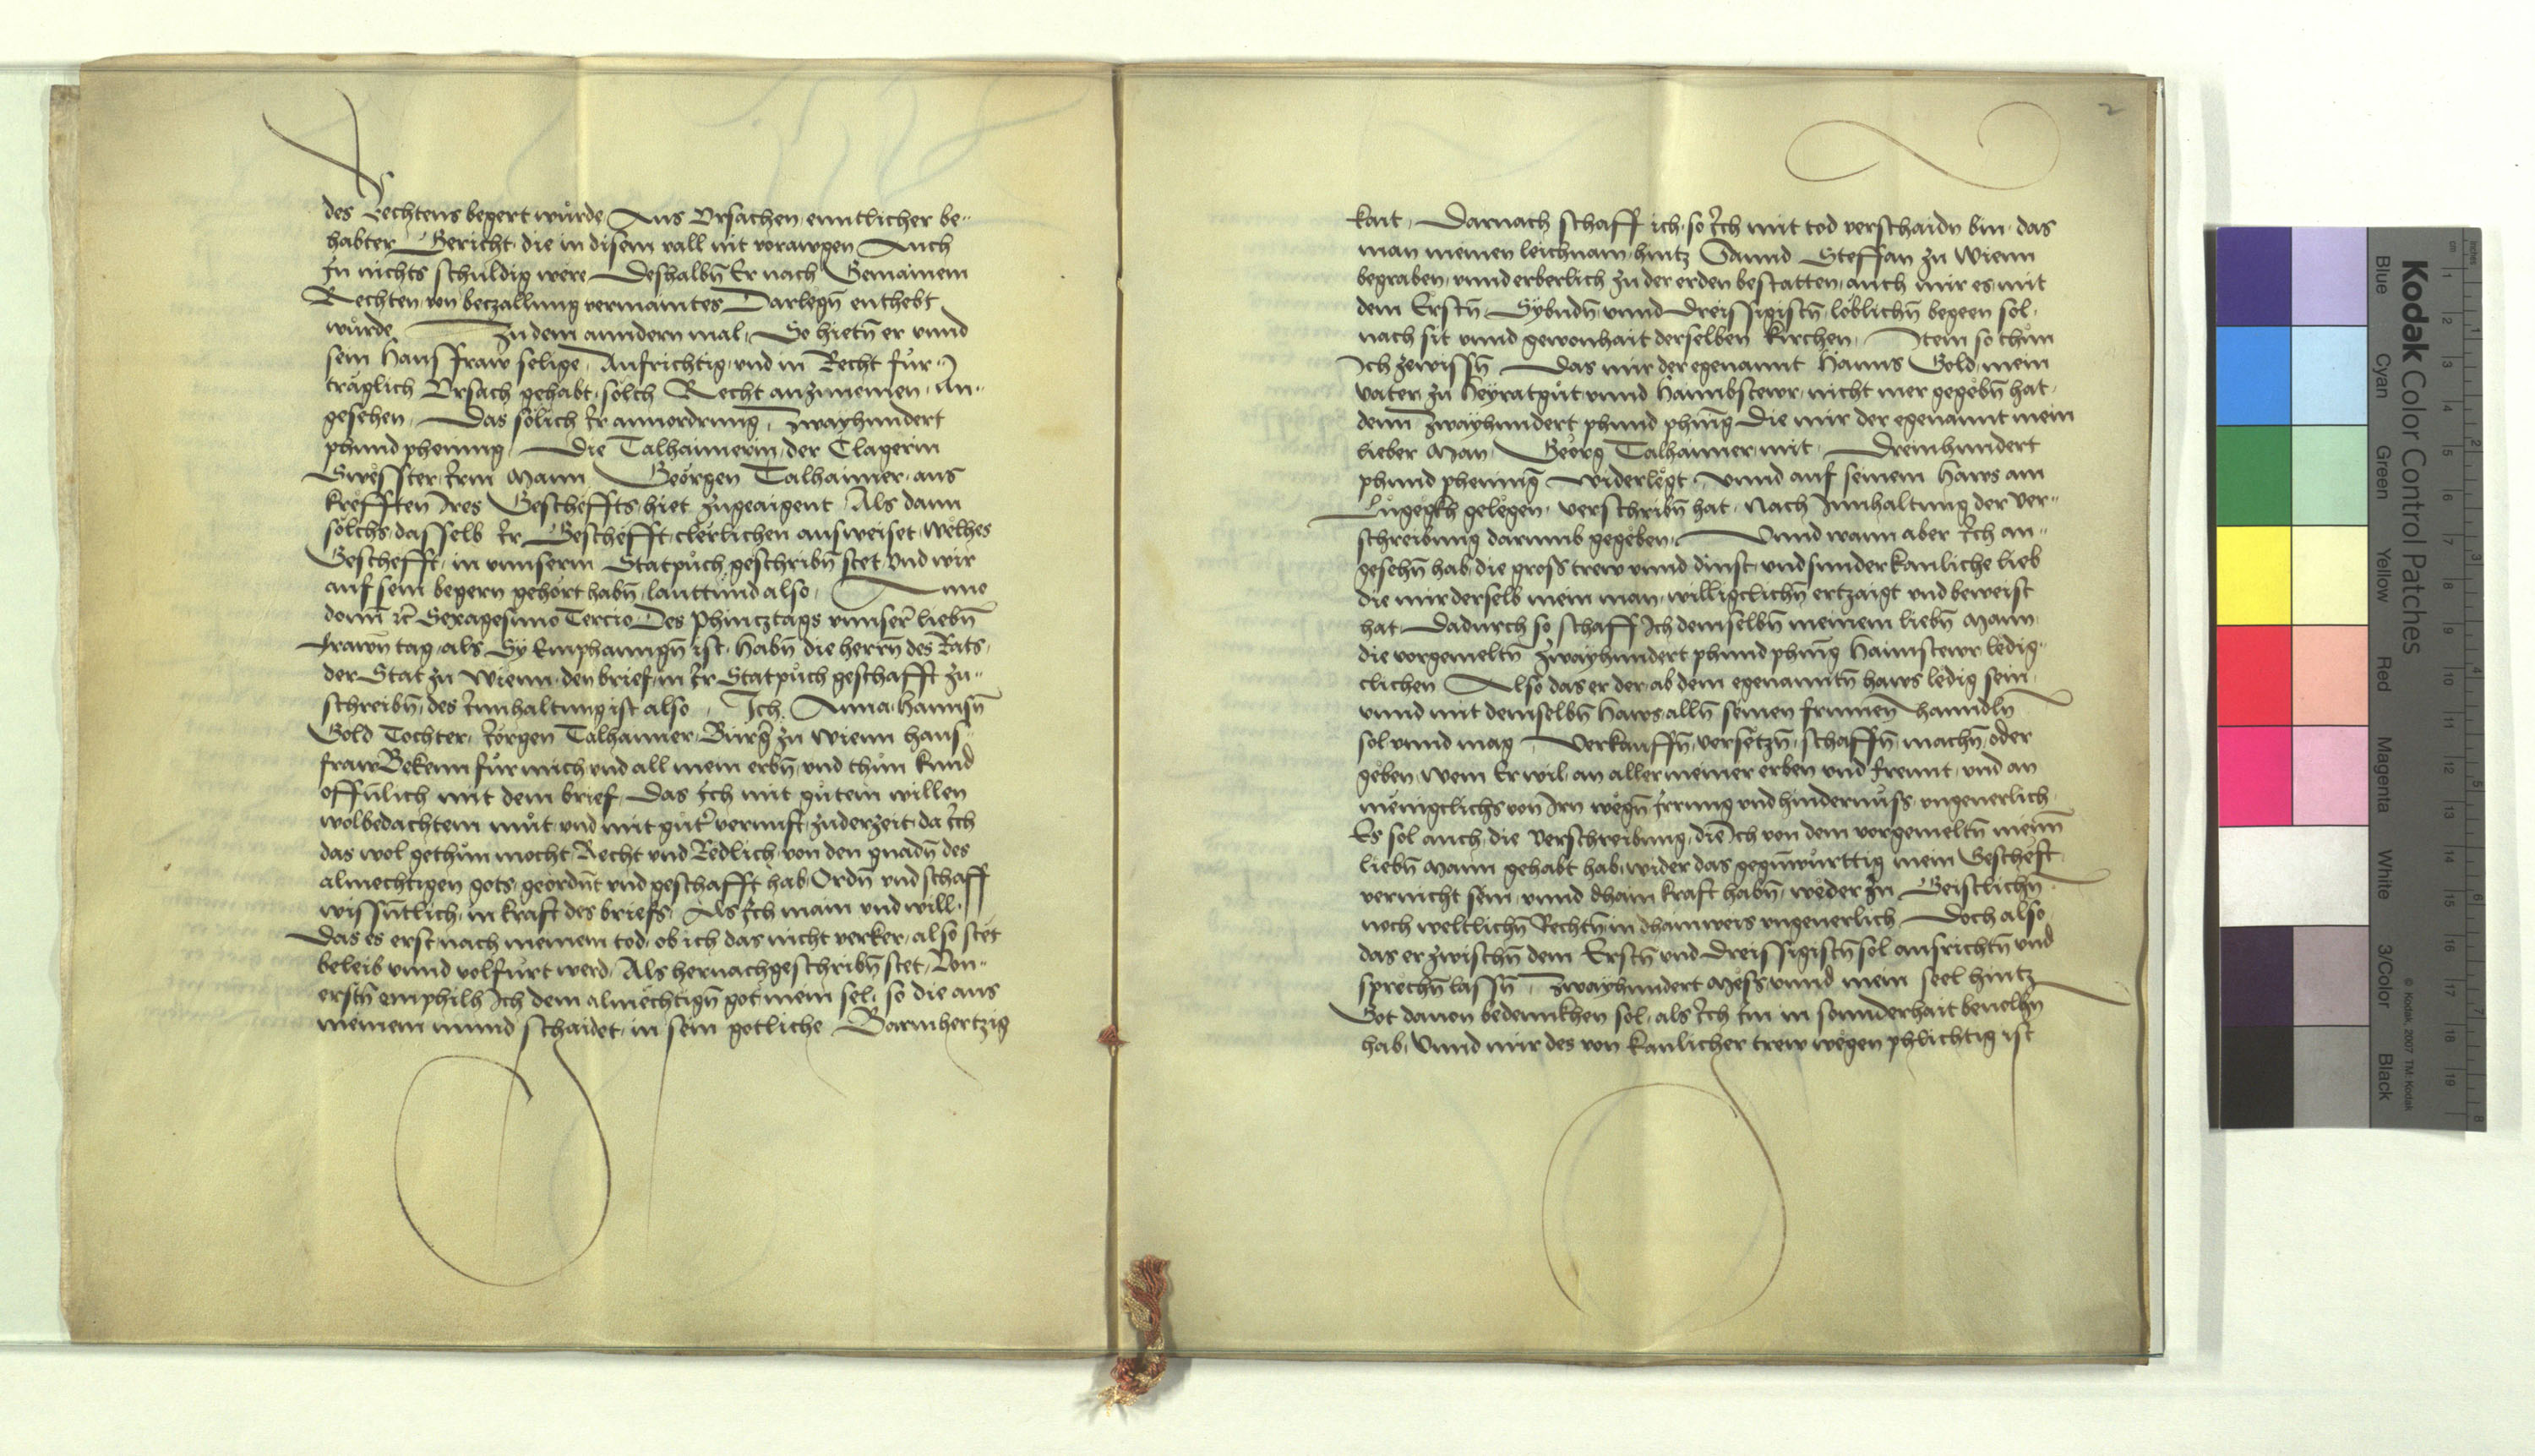 des Rechtens begert wůrde Aus Vrsachen enntlicher be„
habter Gericht, die in disem vall nit vorawgen Auch
Zu nichts schuldig were Deshalbn̄ Er nach Gemainem
Rechten, von beczallung vermaintes Darlegn̄ enthebt
wůrde Zu dem anndern mal, So hietn̄ er vnnd
sein Hausfraw selige, Aufrichtig, vnd in Recht fůr„
träglich Vrsach gehabt, solch Recht anzunemen, An„
gesehen, Das sölich Ir annordrung, Zwayhundert
phund phening Die Talhaimerin, der Clagerin
Swesster, Irm Mann Geörgen Talhaimer, aus
krefften Ires Gescheffts, hiet zugeaigent Als dann
sölchs, dasselb Ir Gescheft, clerlichen ausweiset, welhes
Geschefft, in vnnserm Statpůch, geschribn̄ stet, vnd wir
auf sein begern gehort habn̄, lauttund also, Anno
domi ꝛc̄ Sexagesimo Tercio Des Phincztags vnnser liebn̄
Frawn tag, als Sy Emphanngn̄ ist, Habn̄ die herrn̄ des Rats,
der Stat zu Wienn, den brief, in Ir Statpůch geschafft zu„
schreibn̄, des Innhaltung ist also, Ich Anna, Hannsn̄
Gold Tochter, Jörgen Talhaimer, Burger zu Wienn haus„
fraw Bekenn fůr mich vnd all mein erbn̄, vnd thůn kund
offn̄lich mit dem brief, Das Ich mit gůtem willen
wolbedachtem můt, vnd mit gůter vernuft, zu der zeit, da Ich
das wol gethůn mocht, Recht vnd Redlich, von den gnadn̄ des
almechtigen gots, geordn̄t vnd geschafft hab, Ordn̄ vnd schaff
wissn̄tlich, in kraft des briefs, Als Ich main vnd will,
Das es erst, nach meinem tod, ob ich das nicht verker, also stet
beleib vnnd volfůrt werd, Als hernachgeschribn̄ stet, Von„
erstn̄ emphilh Ich dem almechtign̄ got, mein sel, so die aus
meinem mund schaidet, in sein gotliche Barmhertzig
2
kait, Darnach schaff ich, so Ich mit tod verschaidn bin, das
man meinen leichnam, hintz Sannd Steffan zu Wienn
begraben, vnnd erberlich zu der erden bestatten, auch mir es, mit
dem Erstn̄, Sybndn̄ vnnd Dreissigistn̄, löblichn̄ begeen sol,
nach sit vnnd gewonhait derselben kirchen, Item so thůn
Ich zewissn̄ Das mir der egenannt Hanns Gold, mein
vater, zu Heyratgůt, vnnd Haimbstewr, nicht mer gegebn̄ hat,
denn Zwayhundert phund phenn̄g, Die mir der egenannt mein
lieber Man, Georg Talhaimer, mit Dreinhundert
phund phening widerlegt, vnnd auf seinem Haws am
Lugegkh gelegen, verschribn̄ hat, Nach Innhaltung der Ver„
schreibung darumb gegeben, Vnnd wann aber Ich an„
gesehn̄ hab, die gross trew vnnd dinst, vnd sunder kanliche lieb
die mir derselb mein man, willigclichn̄ ertzaigt vnd beweist
hat, Dadurch so schaff Ich demselbn̄ meinem liebn̄ Mann,
die vorgemeltn̄ Zwayhundert phund phenn̄g Haimstewr ledig„
clichen Also das er der, ab dem egenanntn̄ haws ledig sein,
vnnd mit demselbn̄ Haws, alln̄ seinen frumen hanndln̄
sol vnnd mag, Verkauffn̄, versetzn̄, schaffn̄, machn̄, oder
geben, wem Er wil, an aller meiner erben vnd freunt, vnd an
menigclichs von Irn wegn̄ Irrung vnd hindernůss, vngeuerlich
Es sol auch, die Verschreibung, die Ich von dem vorgemeltn̄ meinn
liebn̄ Mann gehabt hab, wider das gegn̄wůrttig mein Gescheft
vernicht sein, vnnd dhain kraft habn̄, weder in Geistlichn̄
noch weltlichn̄ Rechtn̄, in dhainweis vngeuerlich Doch also,
das er zwischn̄ dem Erstn̄ vnd Dreissigistn̄ sol ausrichtn̄ vnd
sprechn̄ lassn̄, Zwayhundert Mess, vnnd mein seel hintz
Got dauon bedennkhen sol, als Ich Im in sonnderhait beuelhn̄
hab, Vnnd mir des von kanlicher trew wegen phlichtig ist
Kodak Color Control Patches
Blue Cyan Green Yellow Red Magenta White 3/Color Black
© Kodak, 2007 TM: Kodak